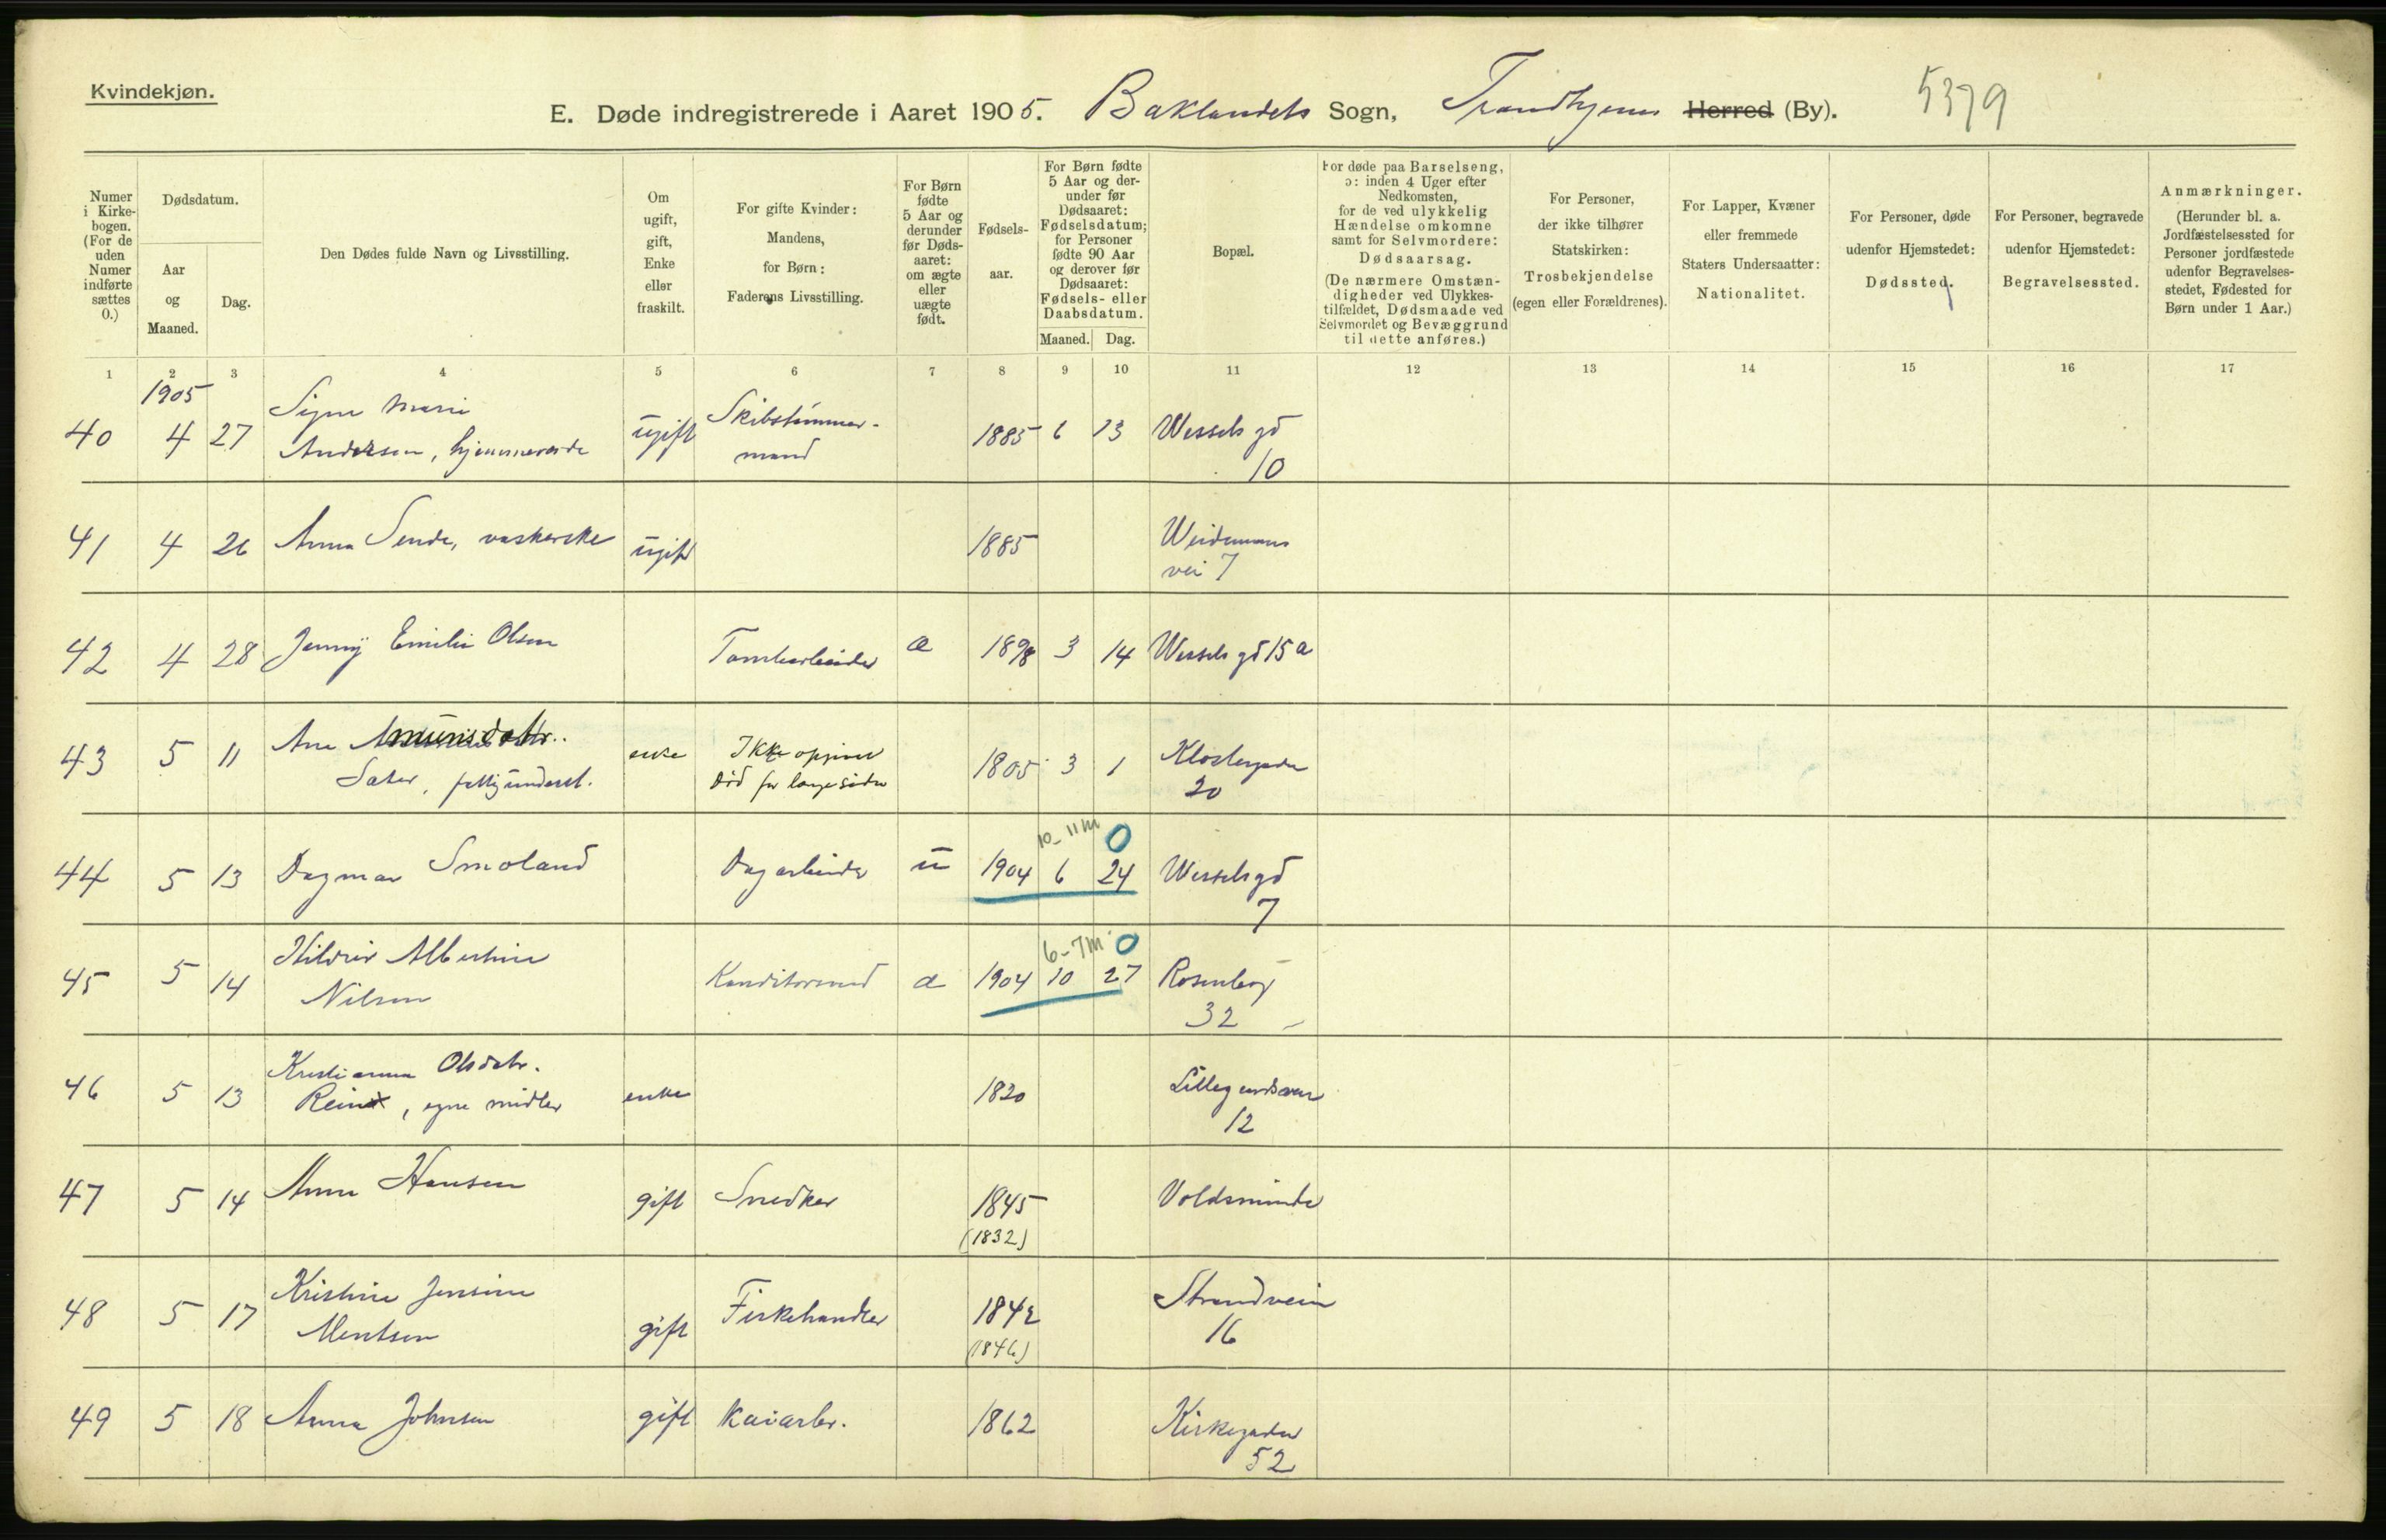 Kvindekjøn.
E. Døde indregistrerede i Aaret 1905. Baklandets Sogn, Trondhjems Herred (By). 5379
Numer i Kirkebogen. (For de uden Numer indførte sættes 0.)
Dødsdatum.
Aar og Maaned.
Dag.
Den Dødes fulde Navn og Livsstilling.
Om ugift, gift, Enke eller fraskilt.
For gifte Kvinder: Mandens, for Børn: Faderens Livsstilling.
For Børn fødte 5 Aar og derunder før Dødsaaret: om ægte eller uægte født.
Fødselsaar.
For Børn fødte 5 Aar og derunder før Dødsaaret: Fødselsdatum; for Personer fødte 90 Aar og derover før Dødsaaret: Fødsels- eller Daabsdatum.
Maaned. Dag.
Bopæl.
For døde paa Barselseng, ɔ: inden 4 Uger efter Nedkomsten, for de ved ulykkelig Hændelse omkomne samt for Selvmordere: Dødsaarsag. (De nærmere Omstændigheder ved Ulykkestilfældet, Dødsmaade ved Selvmordet og Bevæggrund til dette anføres.)
For Personer, der ikke tilhører Statskirken: Trosbekjendelse (egen eller Forældrenes).
For Lapper, Kvæner eller fremmede Staters Undersaatter: Nationalitet.
For Personer, døde udenfor Hjemstedet: Dødssted.
For Personer, begravede udenfor Hjemstedet: Begravelsessted.
Anmærkninger. (Herunder bl. a. Jordfæstelsessted for Personer jordfæstede udenfor Begravelsesstedet, Fødested for Børn under 1 Aar.)
1 2 3 4 5 6 7 8 9 10 11 12 13 14 15 16 17
1905
40 4 27 Signe Marie Andersen, hjemmeværende ugift Skibstømmermand 1885 6 13 Wessels gd 10
41 4 26 Anna Sende, vaskerske ugift 1885 Weidemans vei 7
42 4 28 Jenny Emilie Olsen Tomtearbeider æ 1898 3 14 Wessels gd 15 a
43 5 11 Ane Amunsdattr. Sæter, fattigunderst. enke Ikke opgivet død for længe siden 1805 3 1 Klostergaden 20
10-11 m 0
44 5 13 Dagmar Smoland Dagarbeider u 1904 6 24 Wessels gd 7
6-7 m 0
45 5 14 Hildur Albertine Nilsen Konditorsvend æ 1904 10 27 Rosenborg 32
46 5 13 Kristianna Olsdatr. Rein, egne midler enke 1820 Lillegaardsveien 12
47 5 14 Anna Hansen gift Snedker 1845 (1832) Voldsminde
48 5 17 Kristine Jensine Mentsen gift Fiskehandler 1842 (1846) Strandveien 16
49 5 18 Anna Johnsen gift Kaiarbr. 1862 Kirkegaden 52